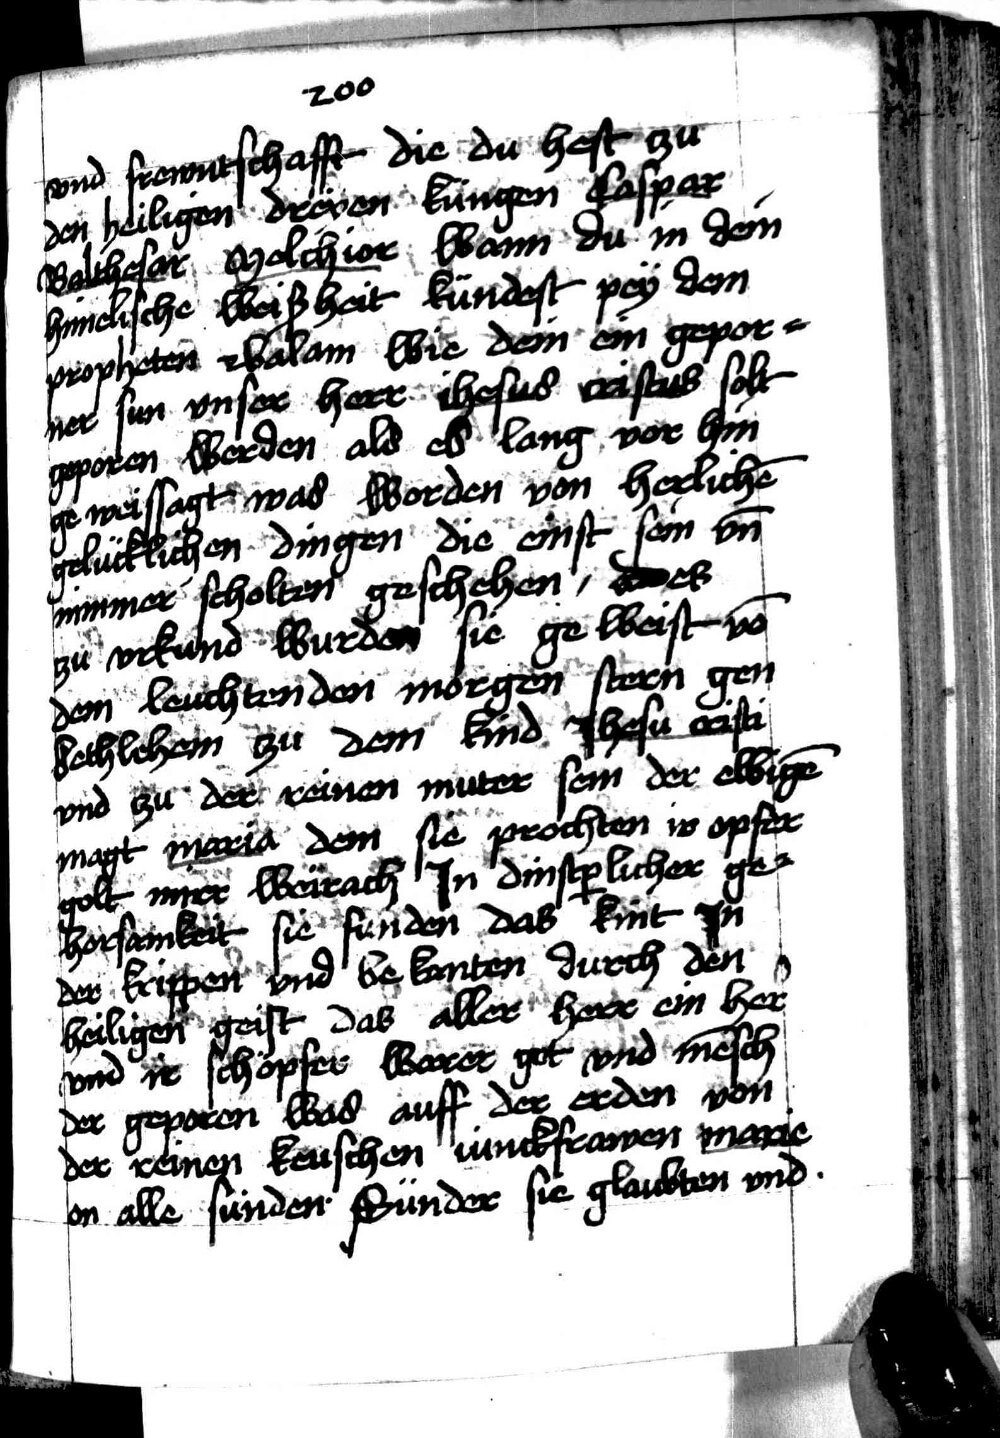 200
vnd frewntschafft die du hest zu
den heiligen dreyen küngen Caspar
Balthesar Melchior Wann du in dein
himelische Weißheit kündest pëy dem
propheten Walam Wie dein ein gepor=
ner sun vnser herr ihesus cristus solt
geporen Werden als es lang vor hin
ge weissagt was Worden von herlichē
gelücklichen dingen die einst sein vn̄
nimmer scholten geschehen / des
zu vrkund Wurden sie ge Weist vō
dem leuchtenden morgen stern gen
bethlehem zu dem kind Jhesu cristi
vnd zu der reinen muter sein der eWigē
magt maria dem sie prochten ir opfer
golt mirr Weirach In dinstperlicher ge=
horsamkeit sie funden das kint In
der krippen vnd be kanten durch den
heiligen geist das aller herr ein her
vnd ir schöpfer Warer got vnd mēsch
der geporen Was auff der erden von
der reinen keuschen iunckfrawen marie
on alle sunden Sünder sie glaubten vnd.